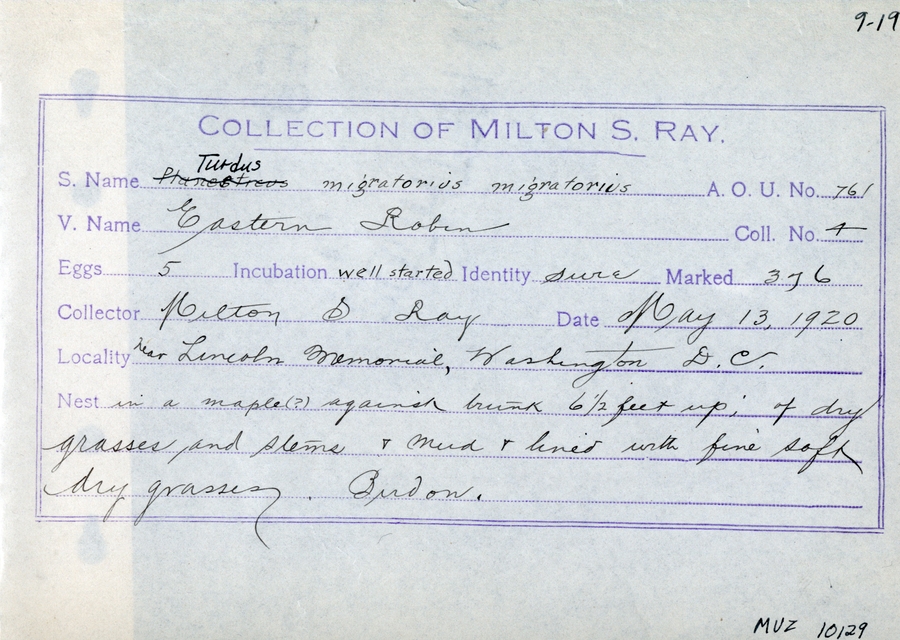 9-19
COLLECTION OF MILTON S. RAY.
Turdus
S. Name Planesticus migratorius migratorius A. O. U. No. 761
V. Name Eastern Robin Coll. No. 4
Eggs 5 Incubation well started Identity sure Marked 3 5/6
Collector Milton S Ray Date May 13, 1920
Locality near Lincoln Memorial, Washington D.C.
Nest in a maple(?) against trunk 6 1/2 feet up; of dry
grasses and stems & mud & lined with fine soft
dry grasses. Bird on.
MVZ 10129